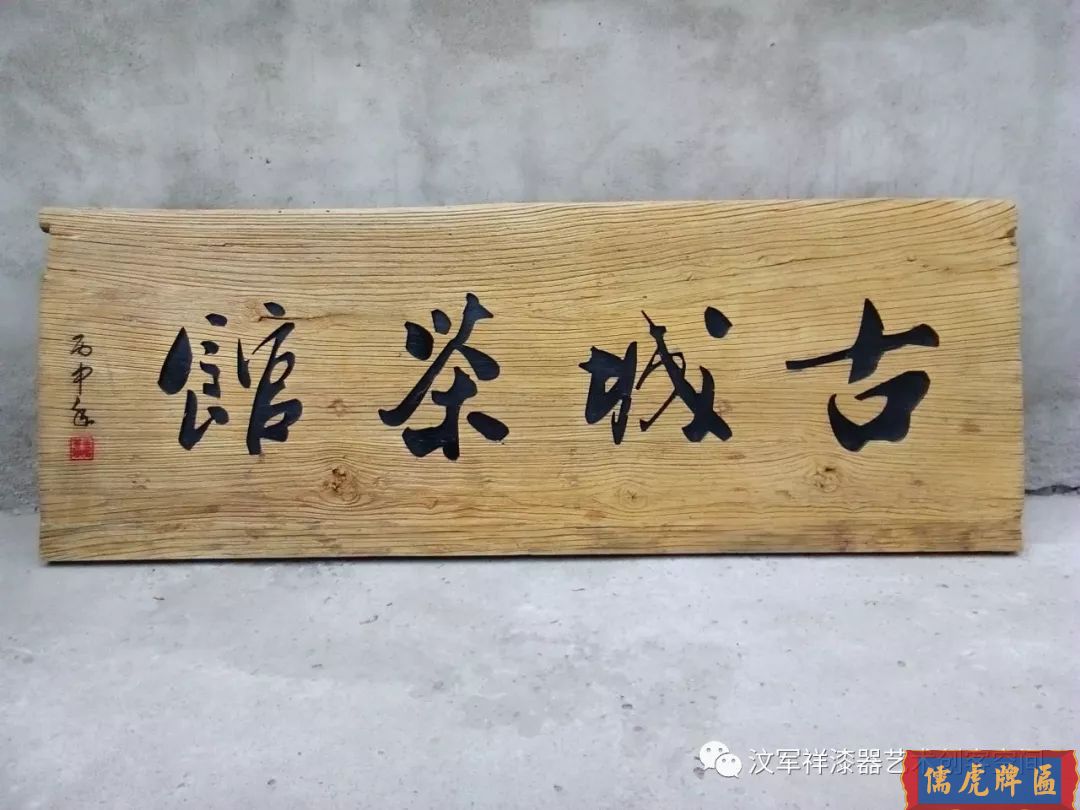 古城茶館
丙申年
汶军祥漆器艺术创客空间
儒虎牌匾